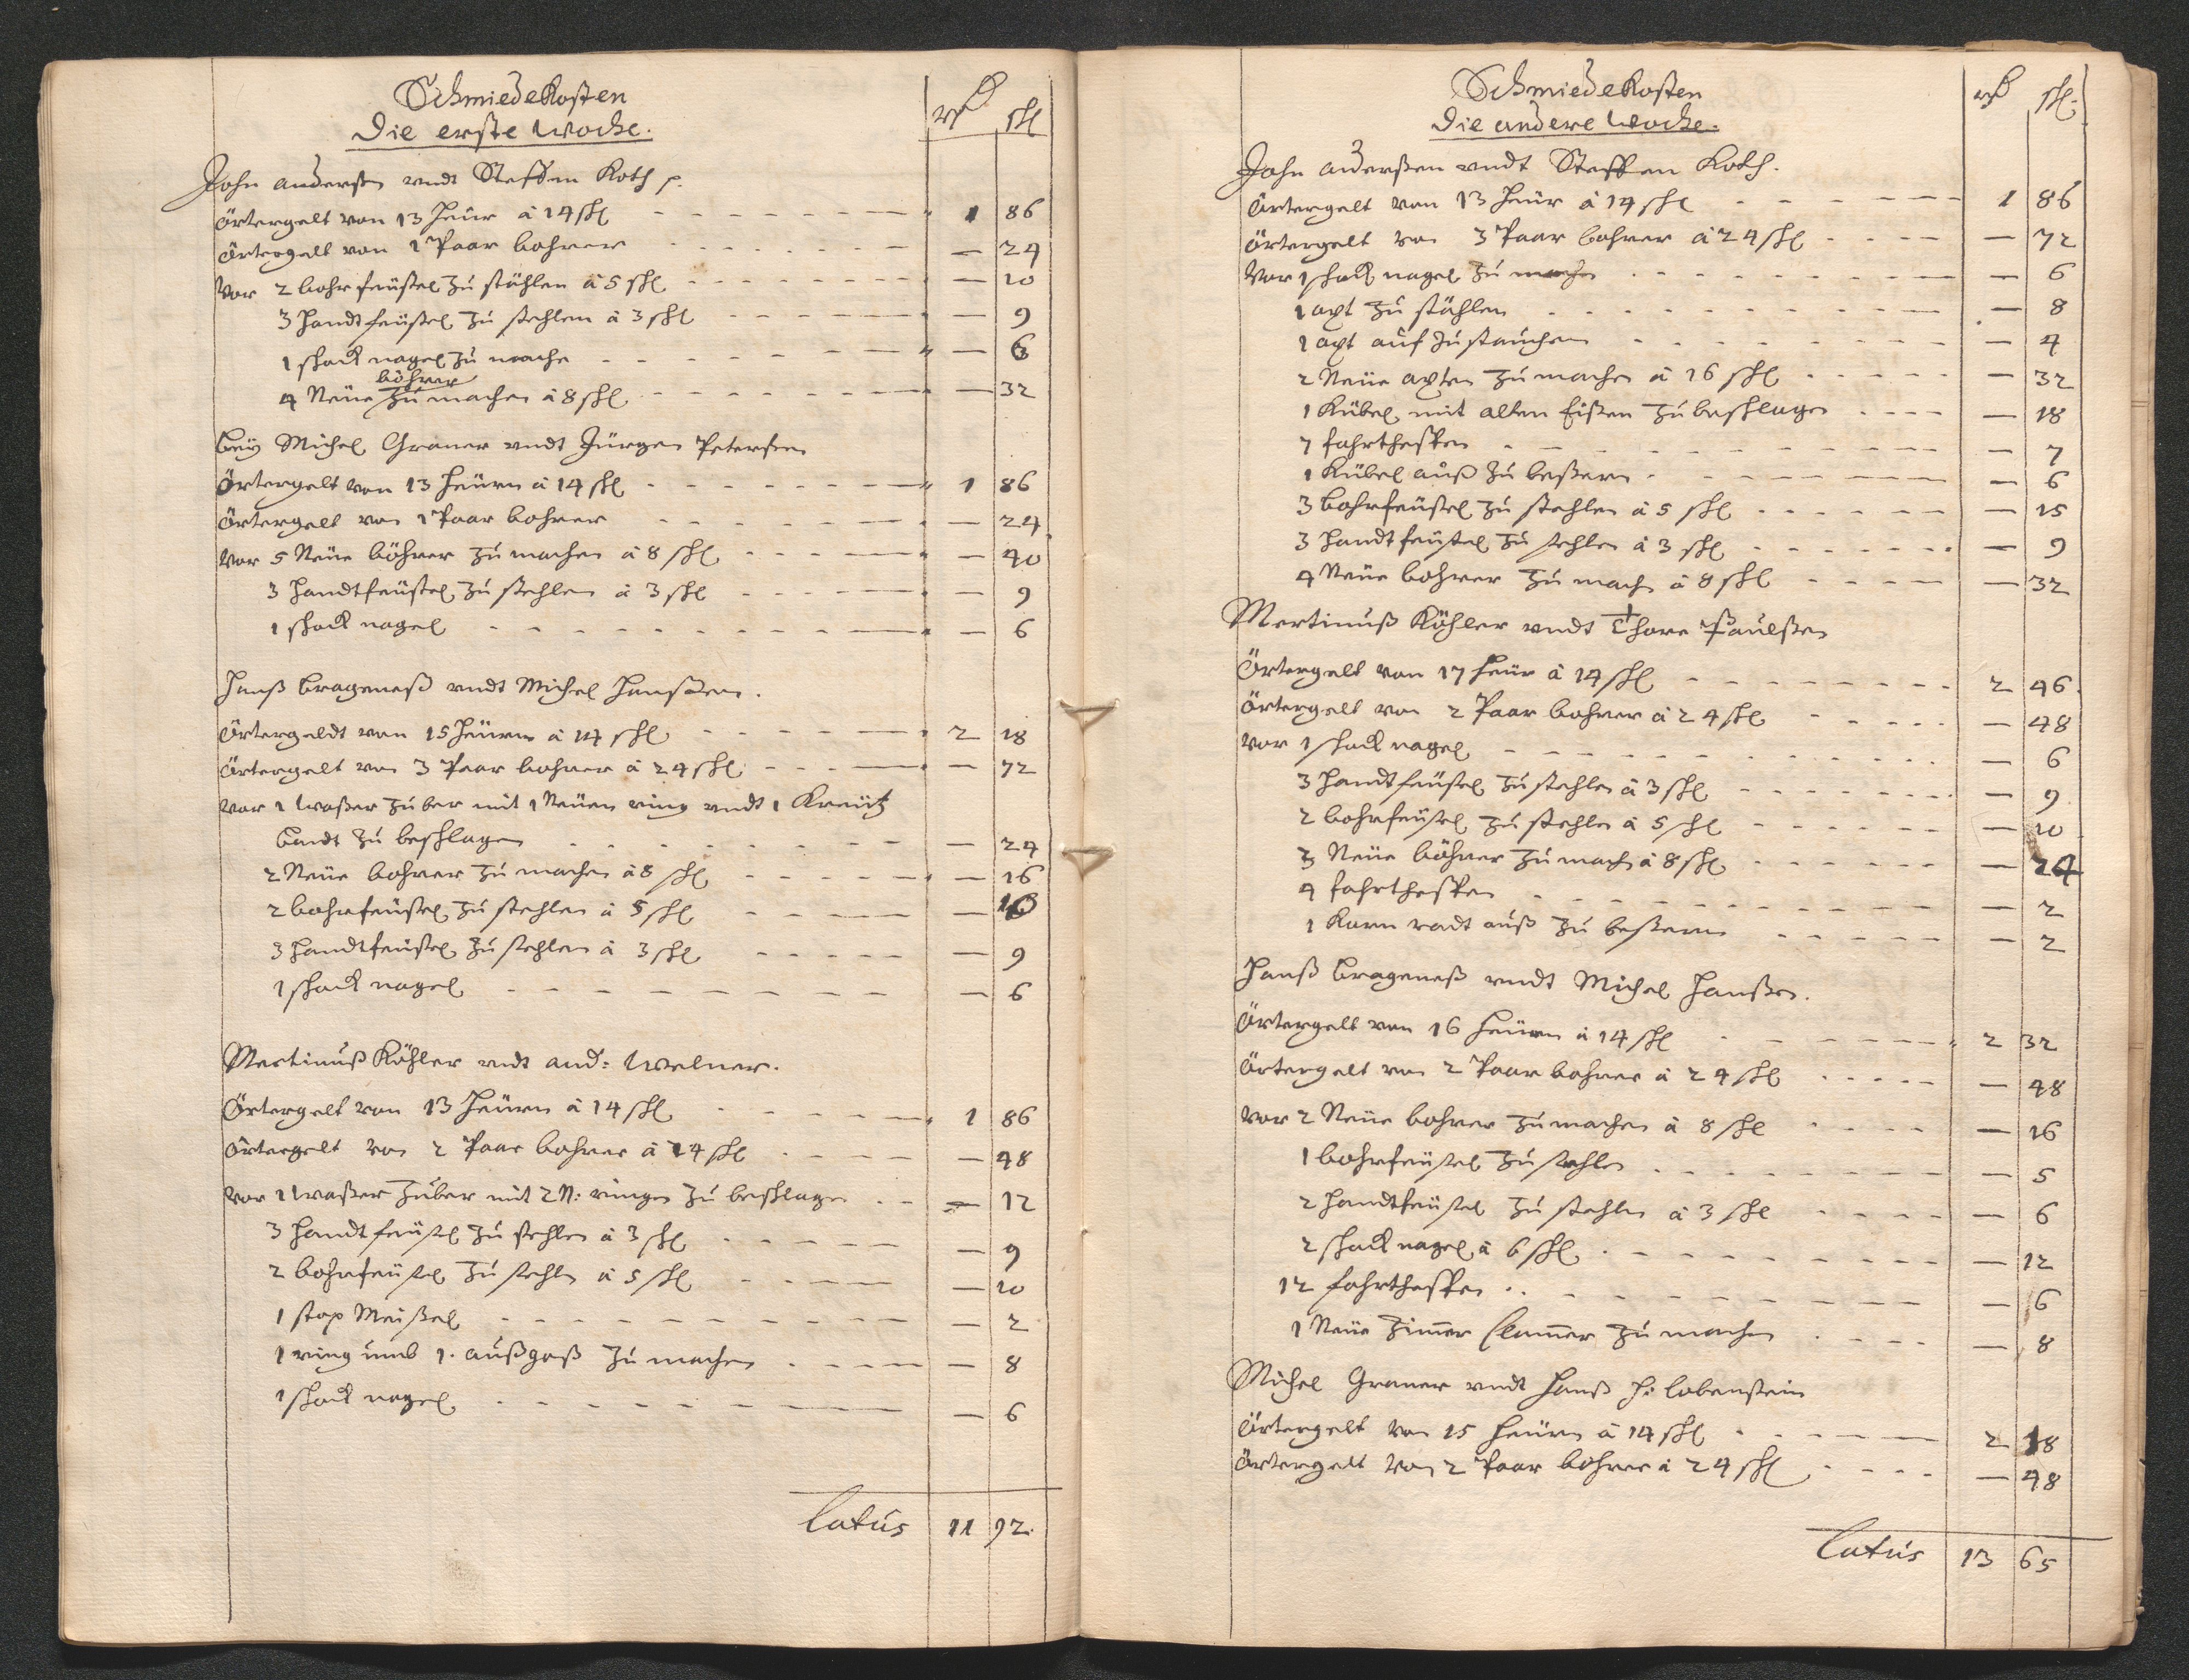 Schmiedekosten
Die erste Woche.
rß shl
John Anderßen undt Steffen Koth p.
Örtergelt von 13 Heür à 14 shl 1 86
Örtergelt von 1 Paar bohrer — 24
Vor 2 bohrfeüstel zu stählen à 5 shl — 10
3 handtfeüstel zu stehlen à 3 shl — 9
1 schock nagel zu mache — 6
böhrer
4 Neüe zu machen à 8 shl — 32
Beÿ Michel Graner undt Jürgen Petersen
Örtergelt von 13 Heüern à 14 shl 1 86
Örtergelt von 1 Paar bohrer — 24
Vor 5 Neüe böhrer zu machen à 8 shl — 40
3 Handtfeüstel zu stehlen à 3 shl — 9
1 schock nagel — 6
Hanß Brageneß undt Michel Hanßen.
Örtergeldt von 15 Heüern à 14 shl 2 18
Örtergelt von 3 Paar bohrer à 24 shl — 72
Vor 1 Waßer zuber mit 1 Neüen ring undt 1 Kreütz
Bandt zu beschlagen — 24
2 Neüe bohrer zu machen à 8 shl — 16
2 bohrfeüstel zu stehlen à 5 shl — 10
3 handtfeüstel zu stehlen à 3 shl — 9
1 schock nagel — 6
Martinuß Köhler undt And: Welner.
Örtergelt von 13 Heüern à 14 shl 1 86
Örtergelt von 2 Paar bohrer à 24 shl — 48
Vor 1 Waßer zuber mit 2 N: ringen zu beschlagen — 12
3 handtfeüstel zu stehlen à 3 shl — 9
2 bohrfeüstel zu stehlen à 5 shl — 10
1 stop Meißel — 2
1 ring umb 1. außgoß zu machen — 8
1 schock nagel — 6
Latus 11 92.
Schmiedekosten
Die andere Woche.
rß shl.
John Anderßen undt Steffen Koth.
Örtergelt von 13 Heür à 14 shl 1 86
Örtergelt von 3 Paar bohrer à 24 shl — 72
Vor 1 schock nagel zu machen — 6
1 axt zu stählen — 8
1 axt auf zu stauchen — 4
2 Neüe axten zu machen à 16 shl — 32
1 Kübel mit alten Eißen zu beschlagen — 18
7 fahrthespen — 7
1 Kübel auß zu beßern — 6
3 Bohrfeüstel zu stehlen à 5 shl — 15
3 handtfeüstel zu stehlen à 3 shl — 9
4 Neüe bohrer zu mach à 8 shl — 32
Mertinuß Köhler undt Thore Paulßen
Örtergelt von 17 Heür à 14 shl 2 46.
Örtergelt von 2 Paar bohrer à 24 shl — 48
Vor 1 schock nagel — 6
3 handtfeüstel zu stehlen à 3 shl — 9
2 bohrfeüstel zu stehlen à 5 shl — 10
3 Neüe böhrer zu mach à 8 shl — 24
4 fahrthespen — 2
1 Karn radt auß zu beßern — 2
Hanß Brageneß undt Michel Hanßen.
Örtergelt von 16 Heüern à 14 shl 2 32
Örtergelt von 2 Paar bohrer à 24 shl — 48
Vor 2 Neüe bohrer zu machen à 8 shl — 16
1 bohrfeüstel zu stehlen — 5
2 handtfeüstel zu stehlen à 3 shl — 6
2 schock nagel à 6 shl — 12
12 fahrthespen — 6
1 Neüe Zimmer Clammer zu machen — 8
Michel Graner undt Hanß H: Lobenstein
Örtergelt von 15 Heüern à 14 shl 2 18
Örtergelt von 2 Paar bohrer à 24 shl — 48
Latus 13 65